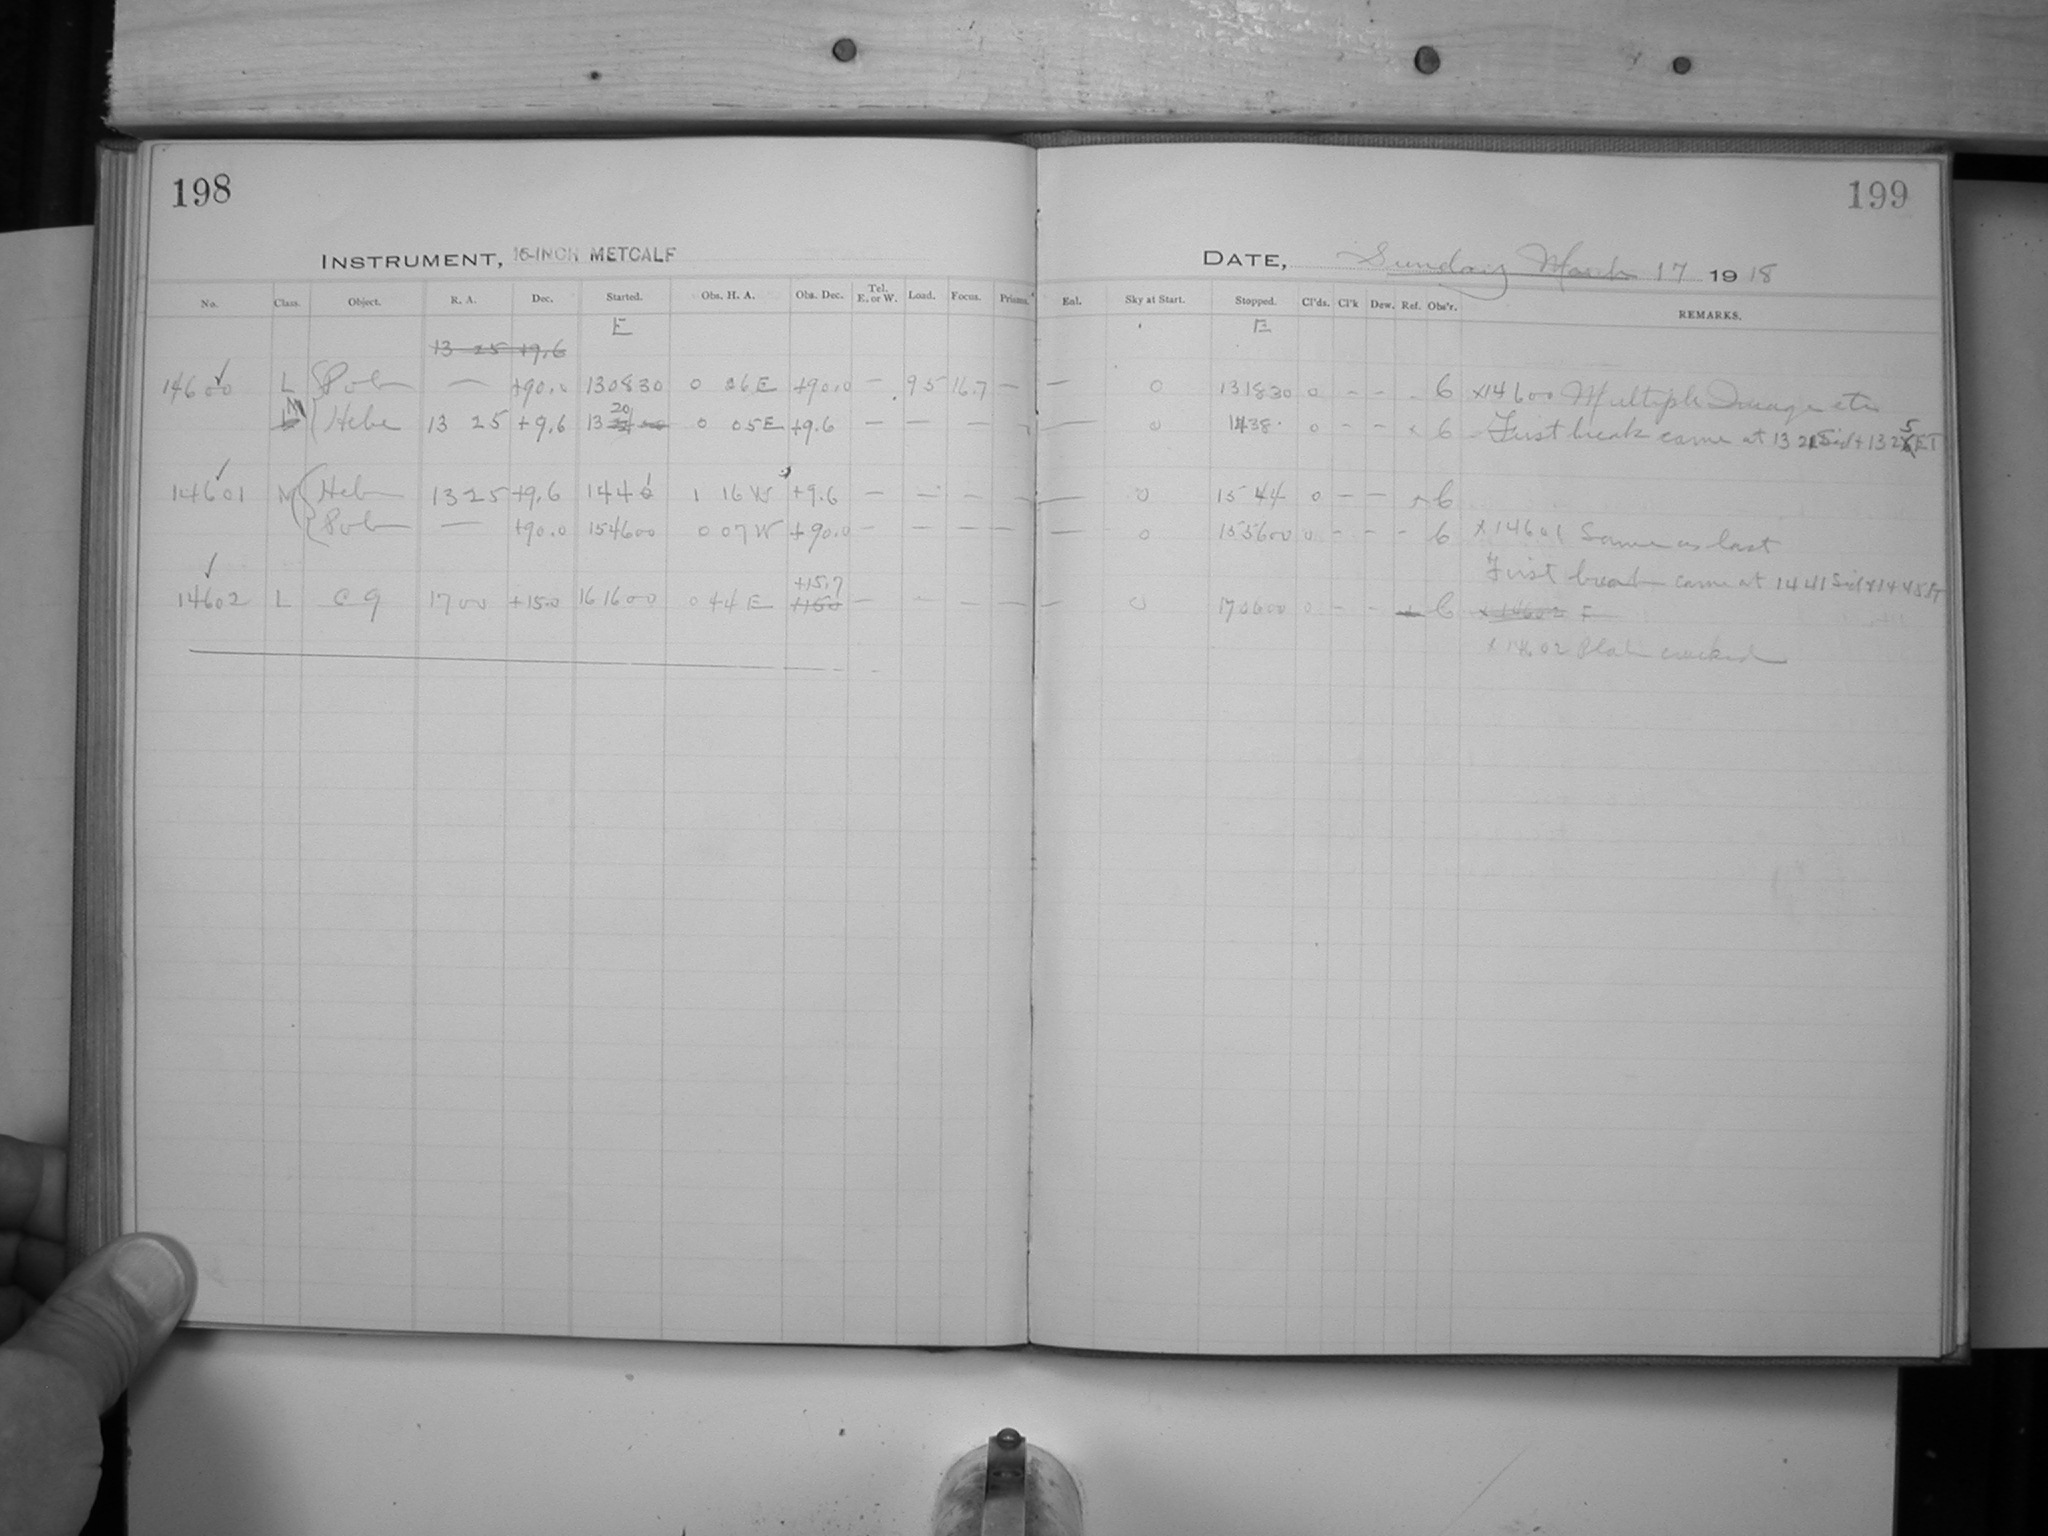 198
199
INSTRUMENT, 16-INCH METCALF
DATE, Sunday March 17 1918
No. Class. Object. R. A. Dec. Started. Obs. H. A. Obs. Dec. Tel. E. or W. Load. Focus. Prisms. Eal. Sky at Start. Stopped. Cl'ds. Cl'k Dew. Ref. Obs'r. REMARKS.
E E
13 25 +9.6
14600 L Pole — +90.0 130830 0 06 E +90.0 — 95 16.7 — — 0 131830 0 - - 6 x14600 Multiple Image etc
M Hebe 13 25 +9.6 13 20 0 05 E +9.6 — — — — 0 1438 0 - - x 6 First break came at 13 21 Sid + 13 25 ET
14601 M Hebe 13 25 +9.6 144 1 16 W +9.6 — — — — — 0 15 44 0 — — 6
Pole — +90.0 154600 0 07 W +90.0 — — — — — 0 155600 0 - - - 6 x14601 Same as last
First break came at 14 41 Sid + 14 45 ET
+15.7
14602 L C 9 17 00 +15.0 161600 0 44 E +15.0 — — — — — 0 170600 0 - - 6 x14602 F
x14602 Plate cracked